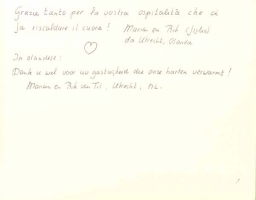 Grazie tanto per la vostra ospitalità che ci
fa riscaldare il cuore! Marian en Piet (Julia)
da Utrecht, Olanda
In olandese:
Dank u wel voor uw gastvrijheid die onze harten verwarmt!
Marian en Piet van Til, Utrecht, NL.